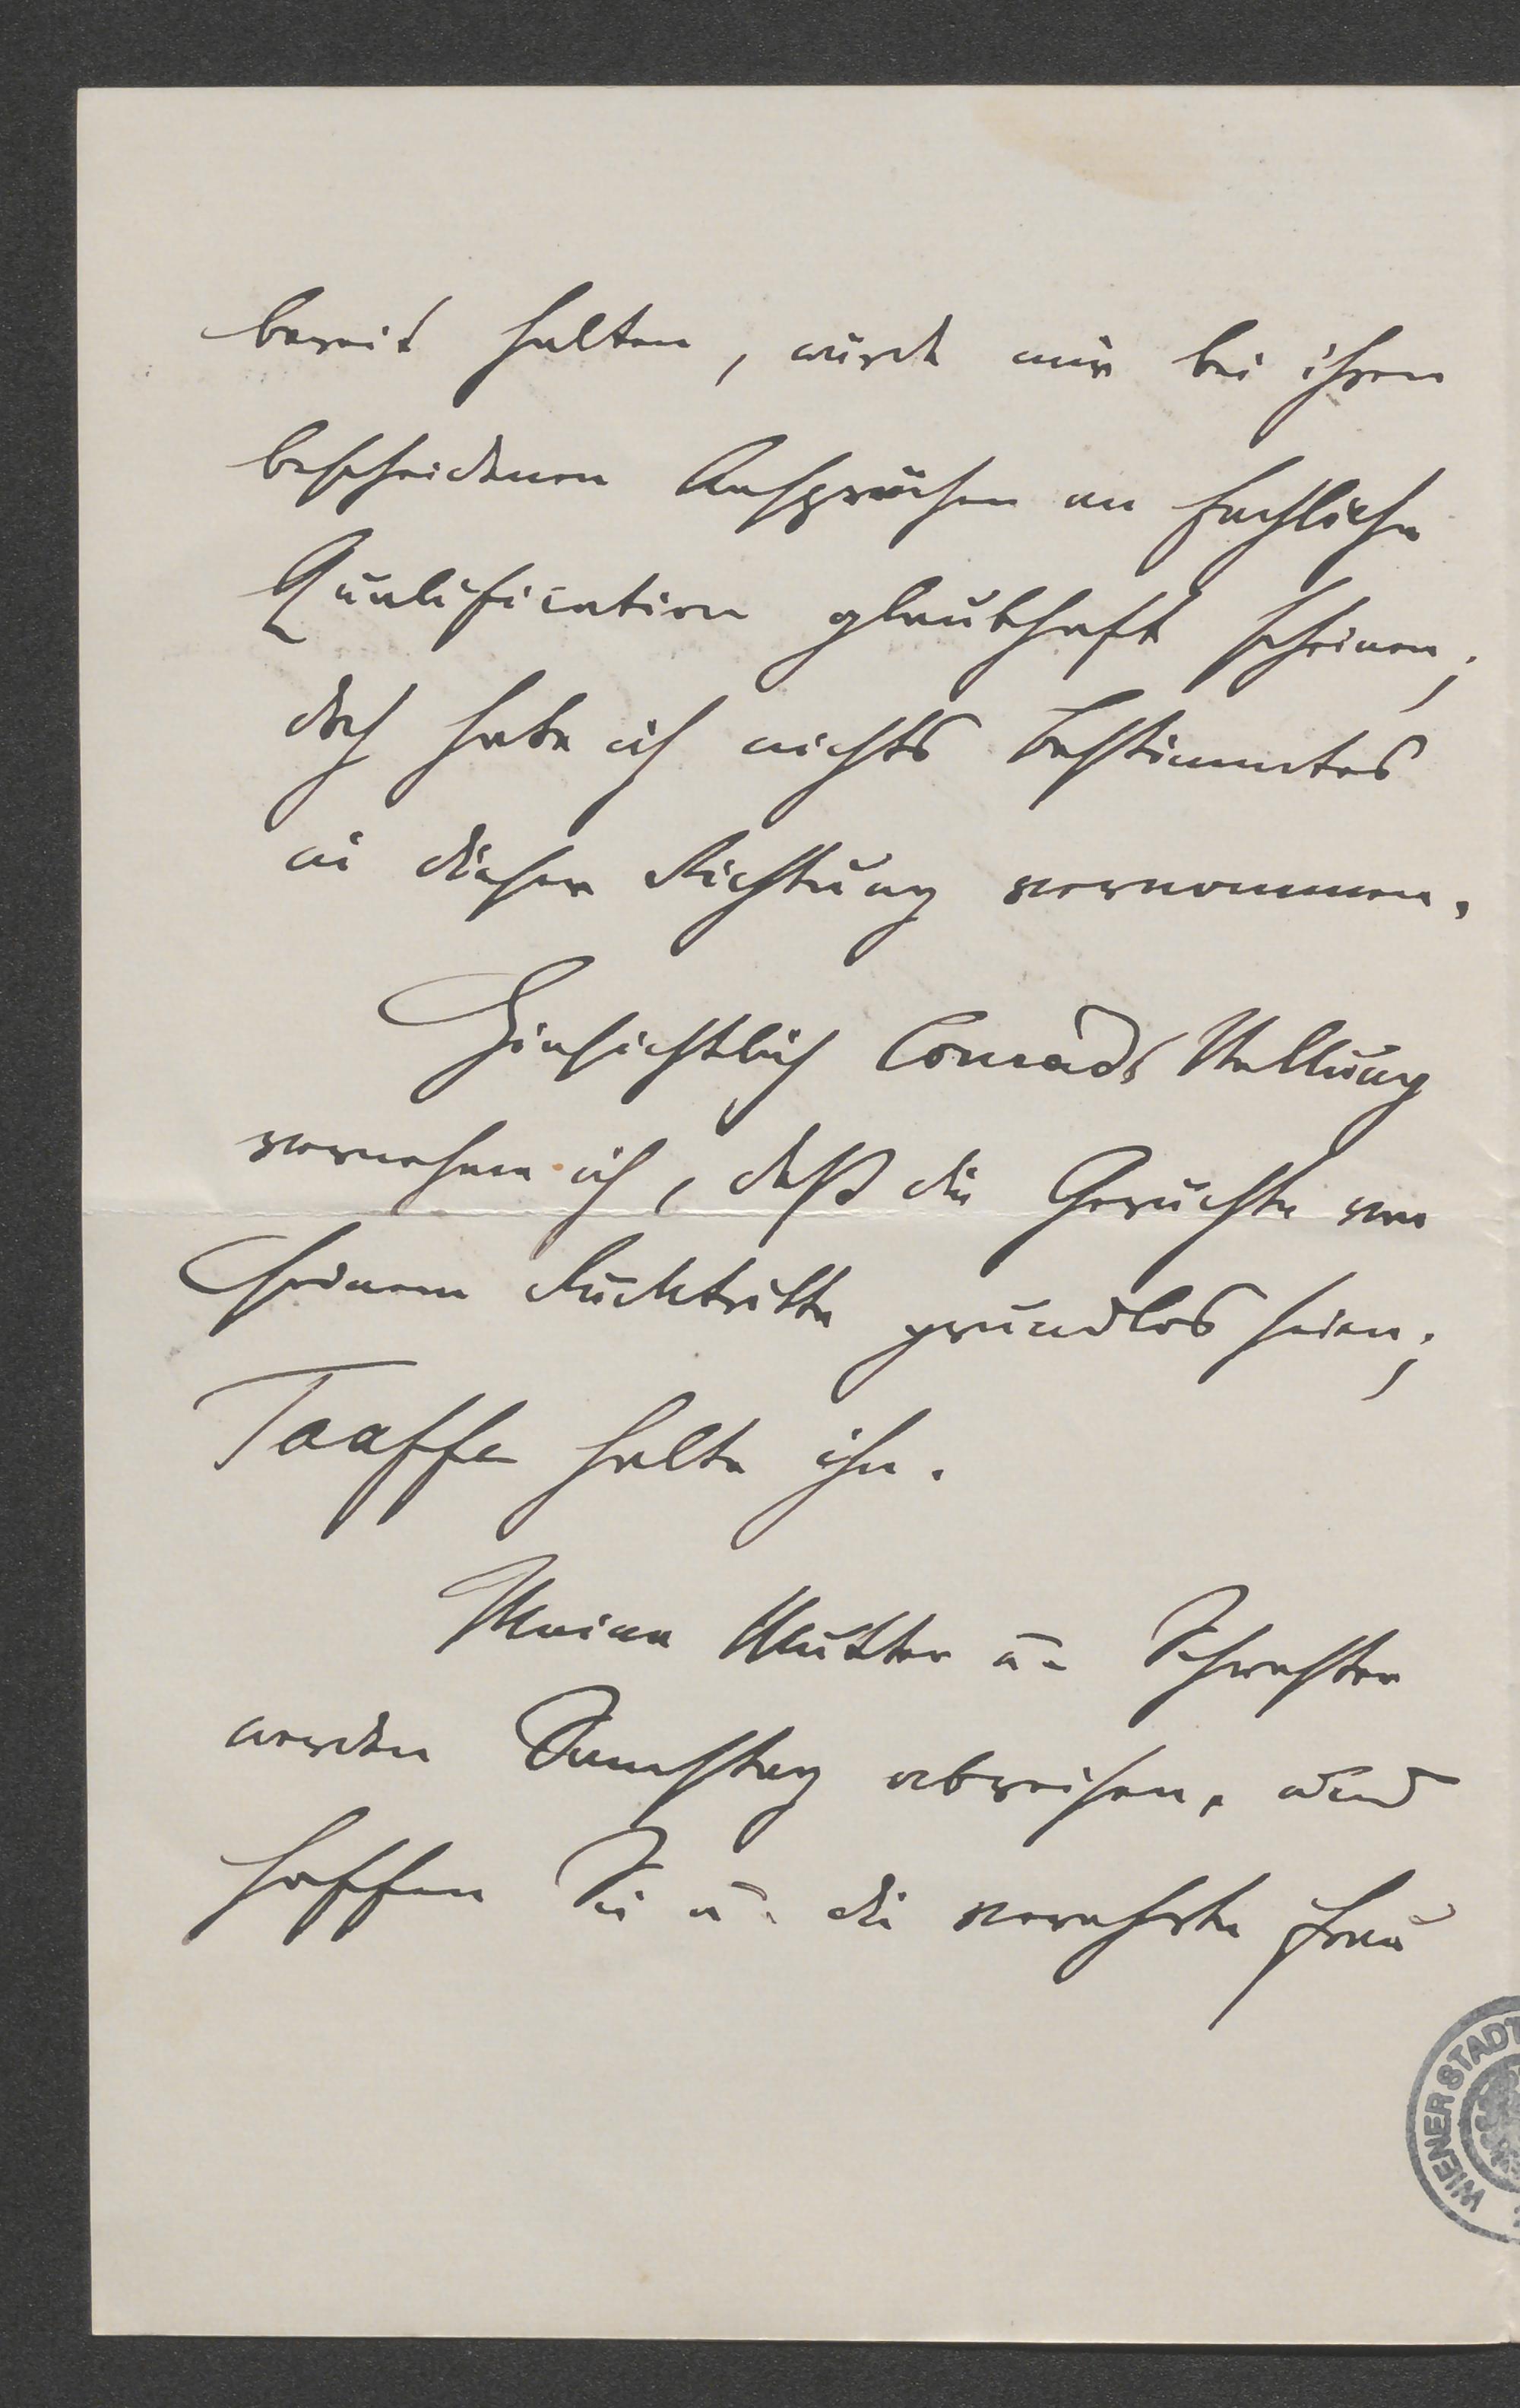 bereit halten, würde mir bei ihren
bescheidenen Ansprüchen an fachliche
Qualification glaubhaft scheinen;
doch habe ich nichts bestimmtes
in dieser Richtung vernommen.
Hinsichtlich Conrads Stellung
vernehme ich, daß die Gerüchte von
seinem Rücktritte grundlos seien;
Taaffe halte ihn.
Meine Mutter u. Schwester
werden Samstag abreisen, und
hoffen Sie u. die verehrte Frau
WIENER STADT